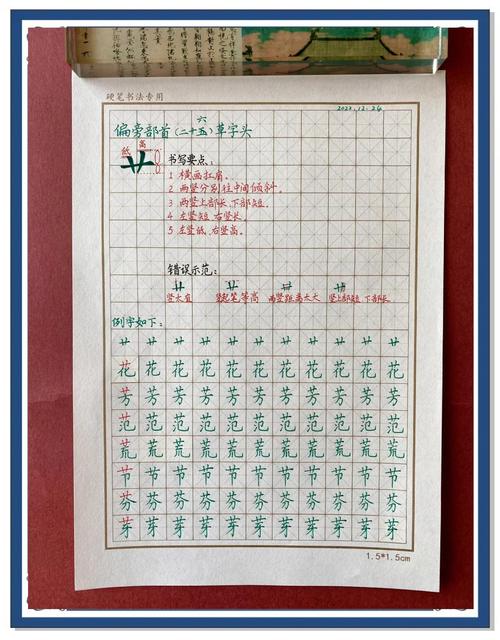 硬笔书法专用
2022.12.24
六
偏旁部首(二十五)草字头
低 高
艹
书写要点:
1 横画扛肩。
2 两竖分别往中间倾斜。
3 两竖上部长,下部短。
4 左竖短,右竖长。
5 左竖低,右竖高。
错误示范:
艹 艹 艹 艹
竖太直 竖起笔等高 两竖距离太大 竖上部短,下部长
例字如下:
艹 艹 艹 艹 艹 艹 艹 艹 艹 艹 艹
花 花 花 花 花 花 花 花 花 花 花
芳 芳 芳 芳 芳 芳 芳 芳 芳 芳 芳
范 范 范 范 范 范 范 范 范 范 范
荒 荒 荒 荒 荒 荒 荒 荒 荒 荒 荒
节 节 节 节 节 节 节 节 节 节 节
芬 芬 芬 芬 芬 芬 芬 芬 芬 芬 芬
芽 芽 芽 芽 芽 芽 芽 芽 芽 芽 芽
1.5*1.5cm